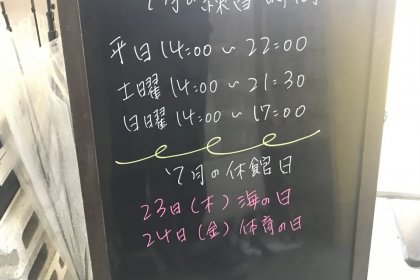 7月の練習
平日14:00~22:00
土曜14:00~21:30
日曜14:00~17:00
7月の休館日
23日(木)海の日
24日(金)体育の日